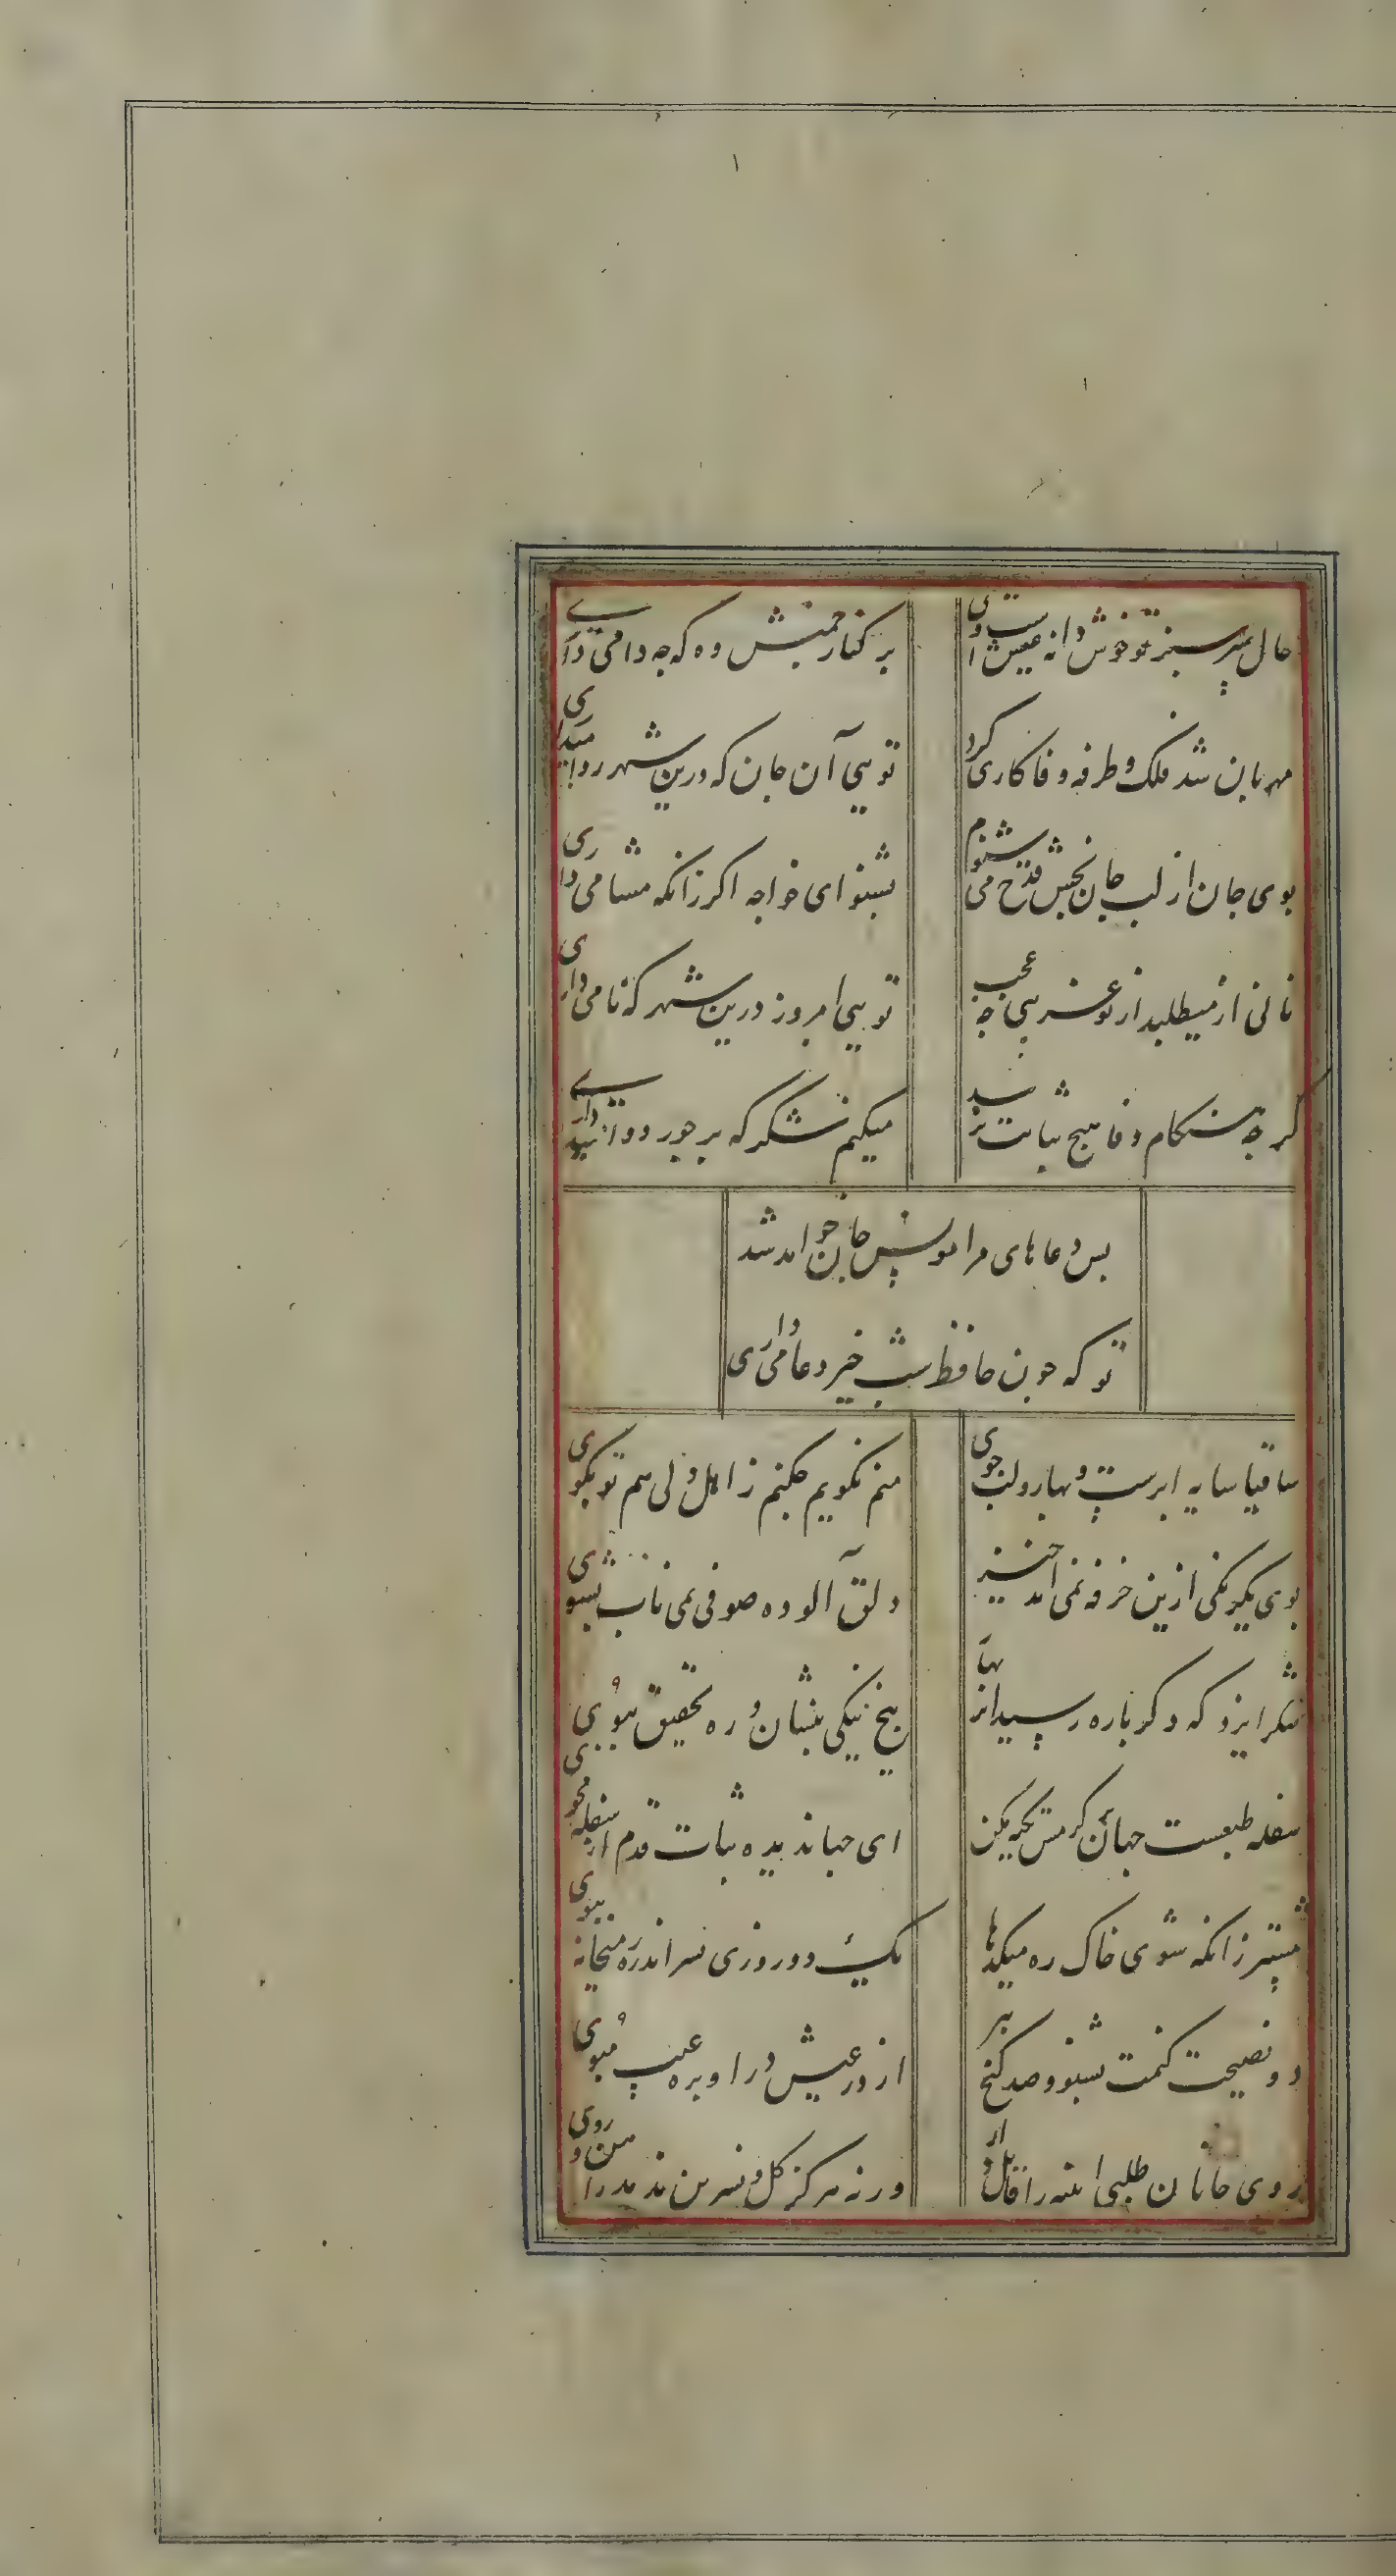 خال سر سبز تو خوش دانه عیش است ولی
بر کنار چمنش وه که چه دامی داری
مهربان شد فلک و طرفه وفا کاری کرد
تویی آن جان که درین شهر روا میداری
بوی جان از لب جان بخش قدح می شنوم
بشنو ای خواجه اگر زانکه مشامی داری
نانی ار میطلبد از تو غریبی چه عجب
تویی امروز درین شهر که نامی داری
گرچه هنگام وفا هیچ ثباتت نبود
میکنم شکر که بر جور دوامی داری
بس دعاهای مرا مونس جان خواهد شد
تو که چون حافظ شب خیز دعامی داری
ساقیا سایه ابرست و بهار و لب جوی
من نگویم چکنم ز اهل دلی هم تو بگوی
بوی یکرنگی ازین خرقه نمی آید خیز
دلق آلوده صوفی بمی ناب بشوی
شکر ایزد که دگر باره رسید از بهار
بیخ نیکی بنشان و ره تحقیق بپوی
سفله طبعست جهان بر کرمش تکیه مکن
ای جهاندیده ثبات قدم از سفله مجوی
پیشتر زانکه شوی خاک ره میکدها
یک دو روزی بسر اندر ره میخانه بپوی
دو نصیحت کنمت بشنو و صد گنج ببر
از در عیش درآ و بره عیب مپوی
روی جانان طلبی اینه را قابل دار
ورنه هرگز گل و نسرین ندمد ز آهن و روی